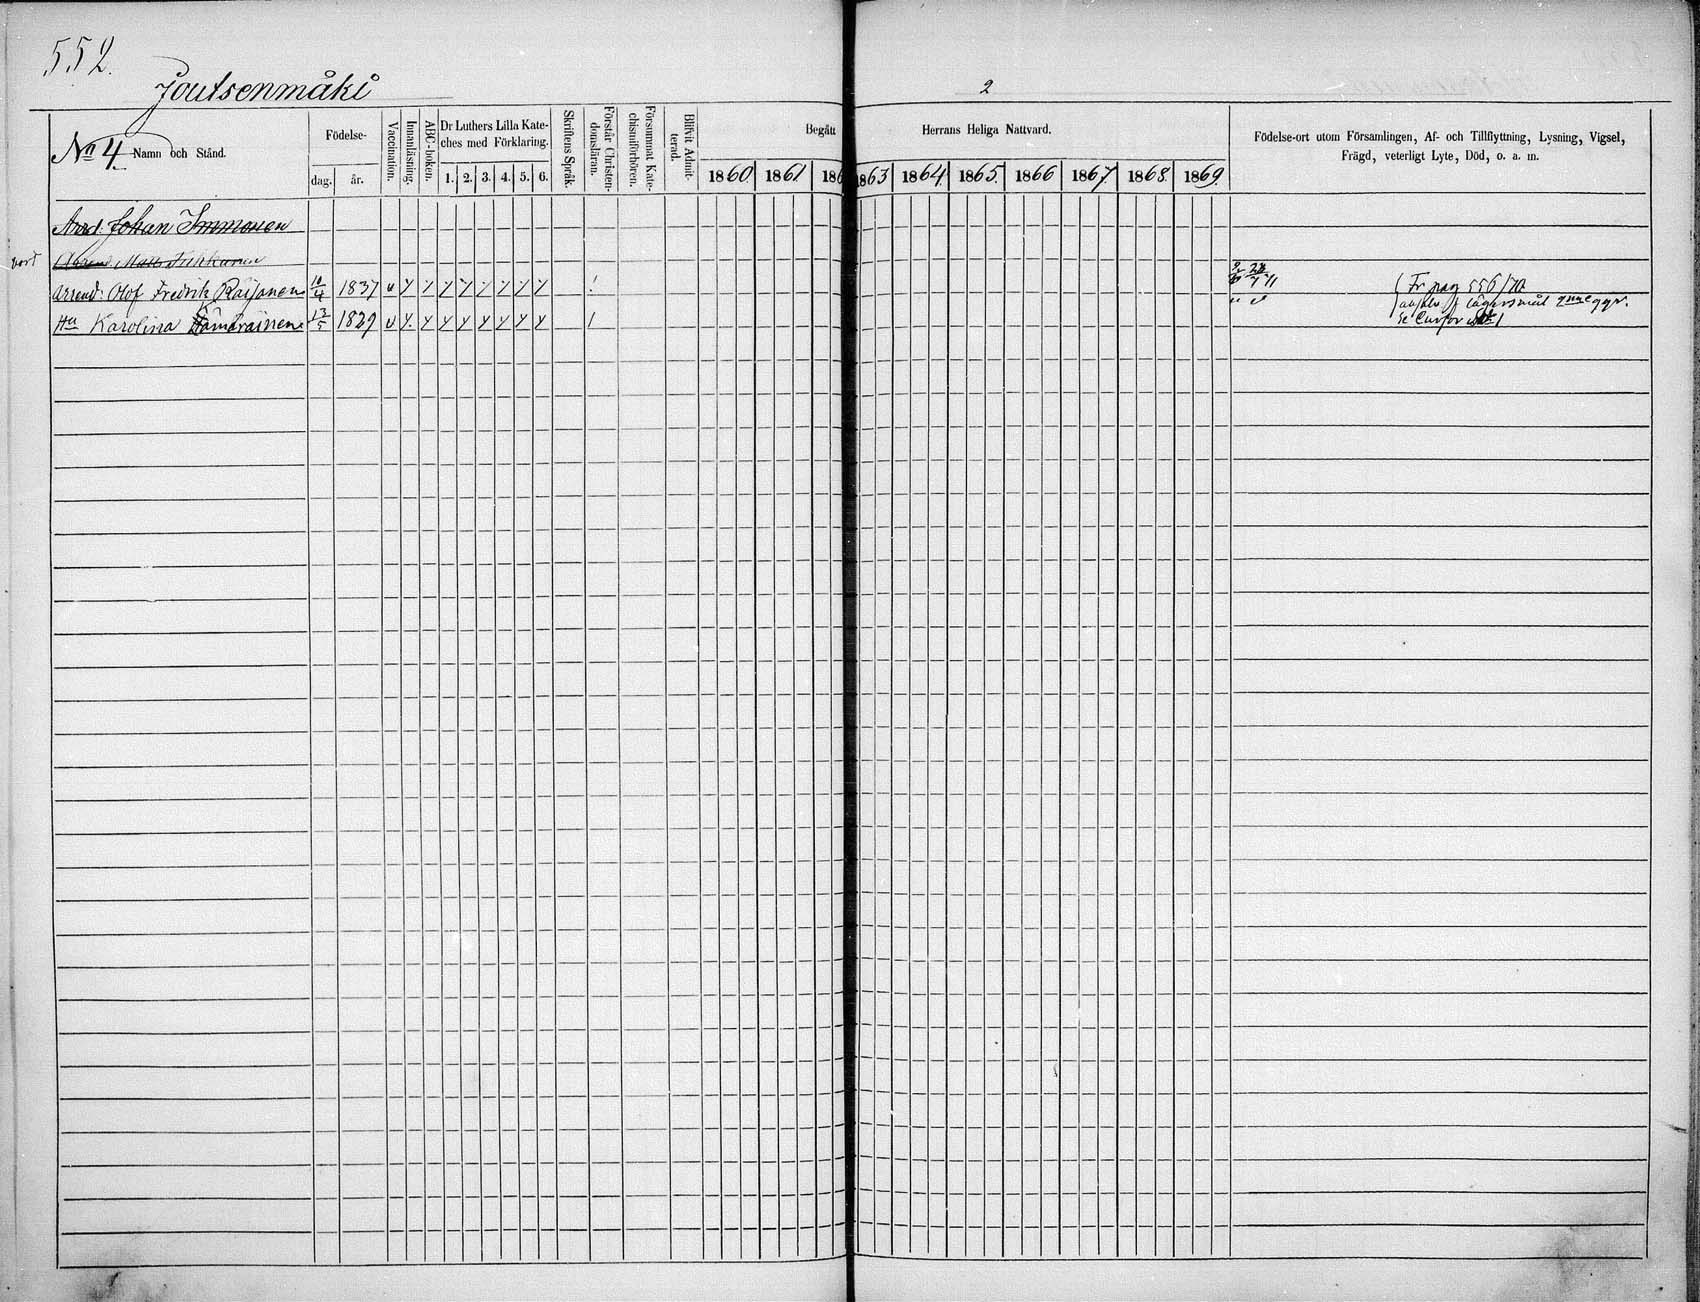 552.
Joutsenmäki
2
No 4
Namn och Stånd.
Födelse-
dag. år.
Vaccination.
Innanläsning.
ABC-boken.
Dr Luthers Lilla Kate-
ches med Förklaring.
1. 2. 3. 4. 5. 6.
Skriftens Språk.
Förstår Christen-
domsläran.
Försummat Kate-
chismiförhören.
Blifvit Admit-
terad.
Begått
Herrans Heliga Nattvard.
1860 1861 186 1863 1864 1865. 1866 1867 1868 1869.
Födelse-ort utom Församlingen, Af- och Tillflyttning, Lysning, Vigsel,
Frägd, veterligt Lyte, Död, o. a. m.
Arrd. Johan Immonen
vort Matts
Arrend. Olof Fredrik Räisänen 10/4 1837 Fr pag 556/70
Hu Karolina Hämäräinen 13/5 1829